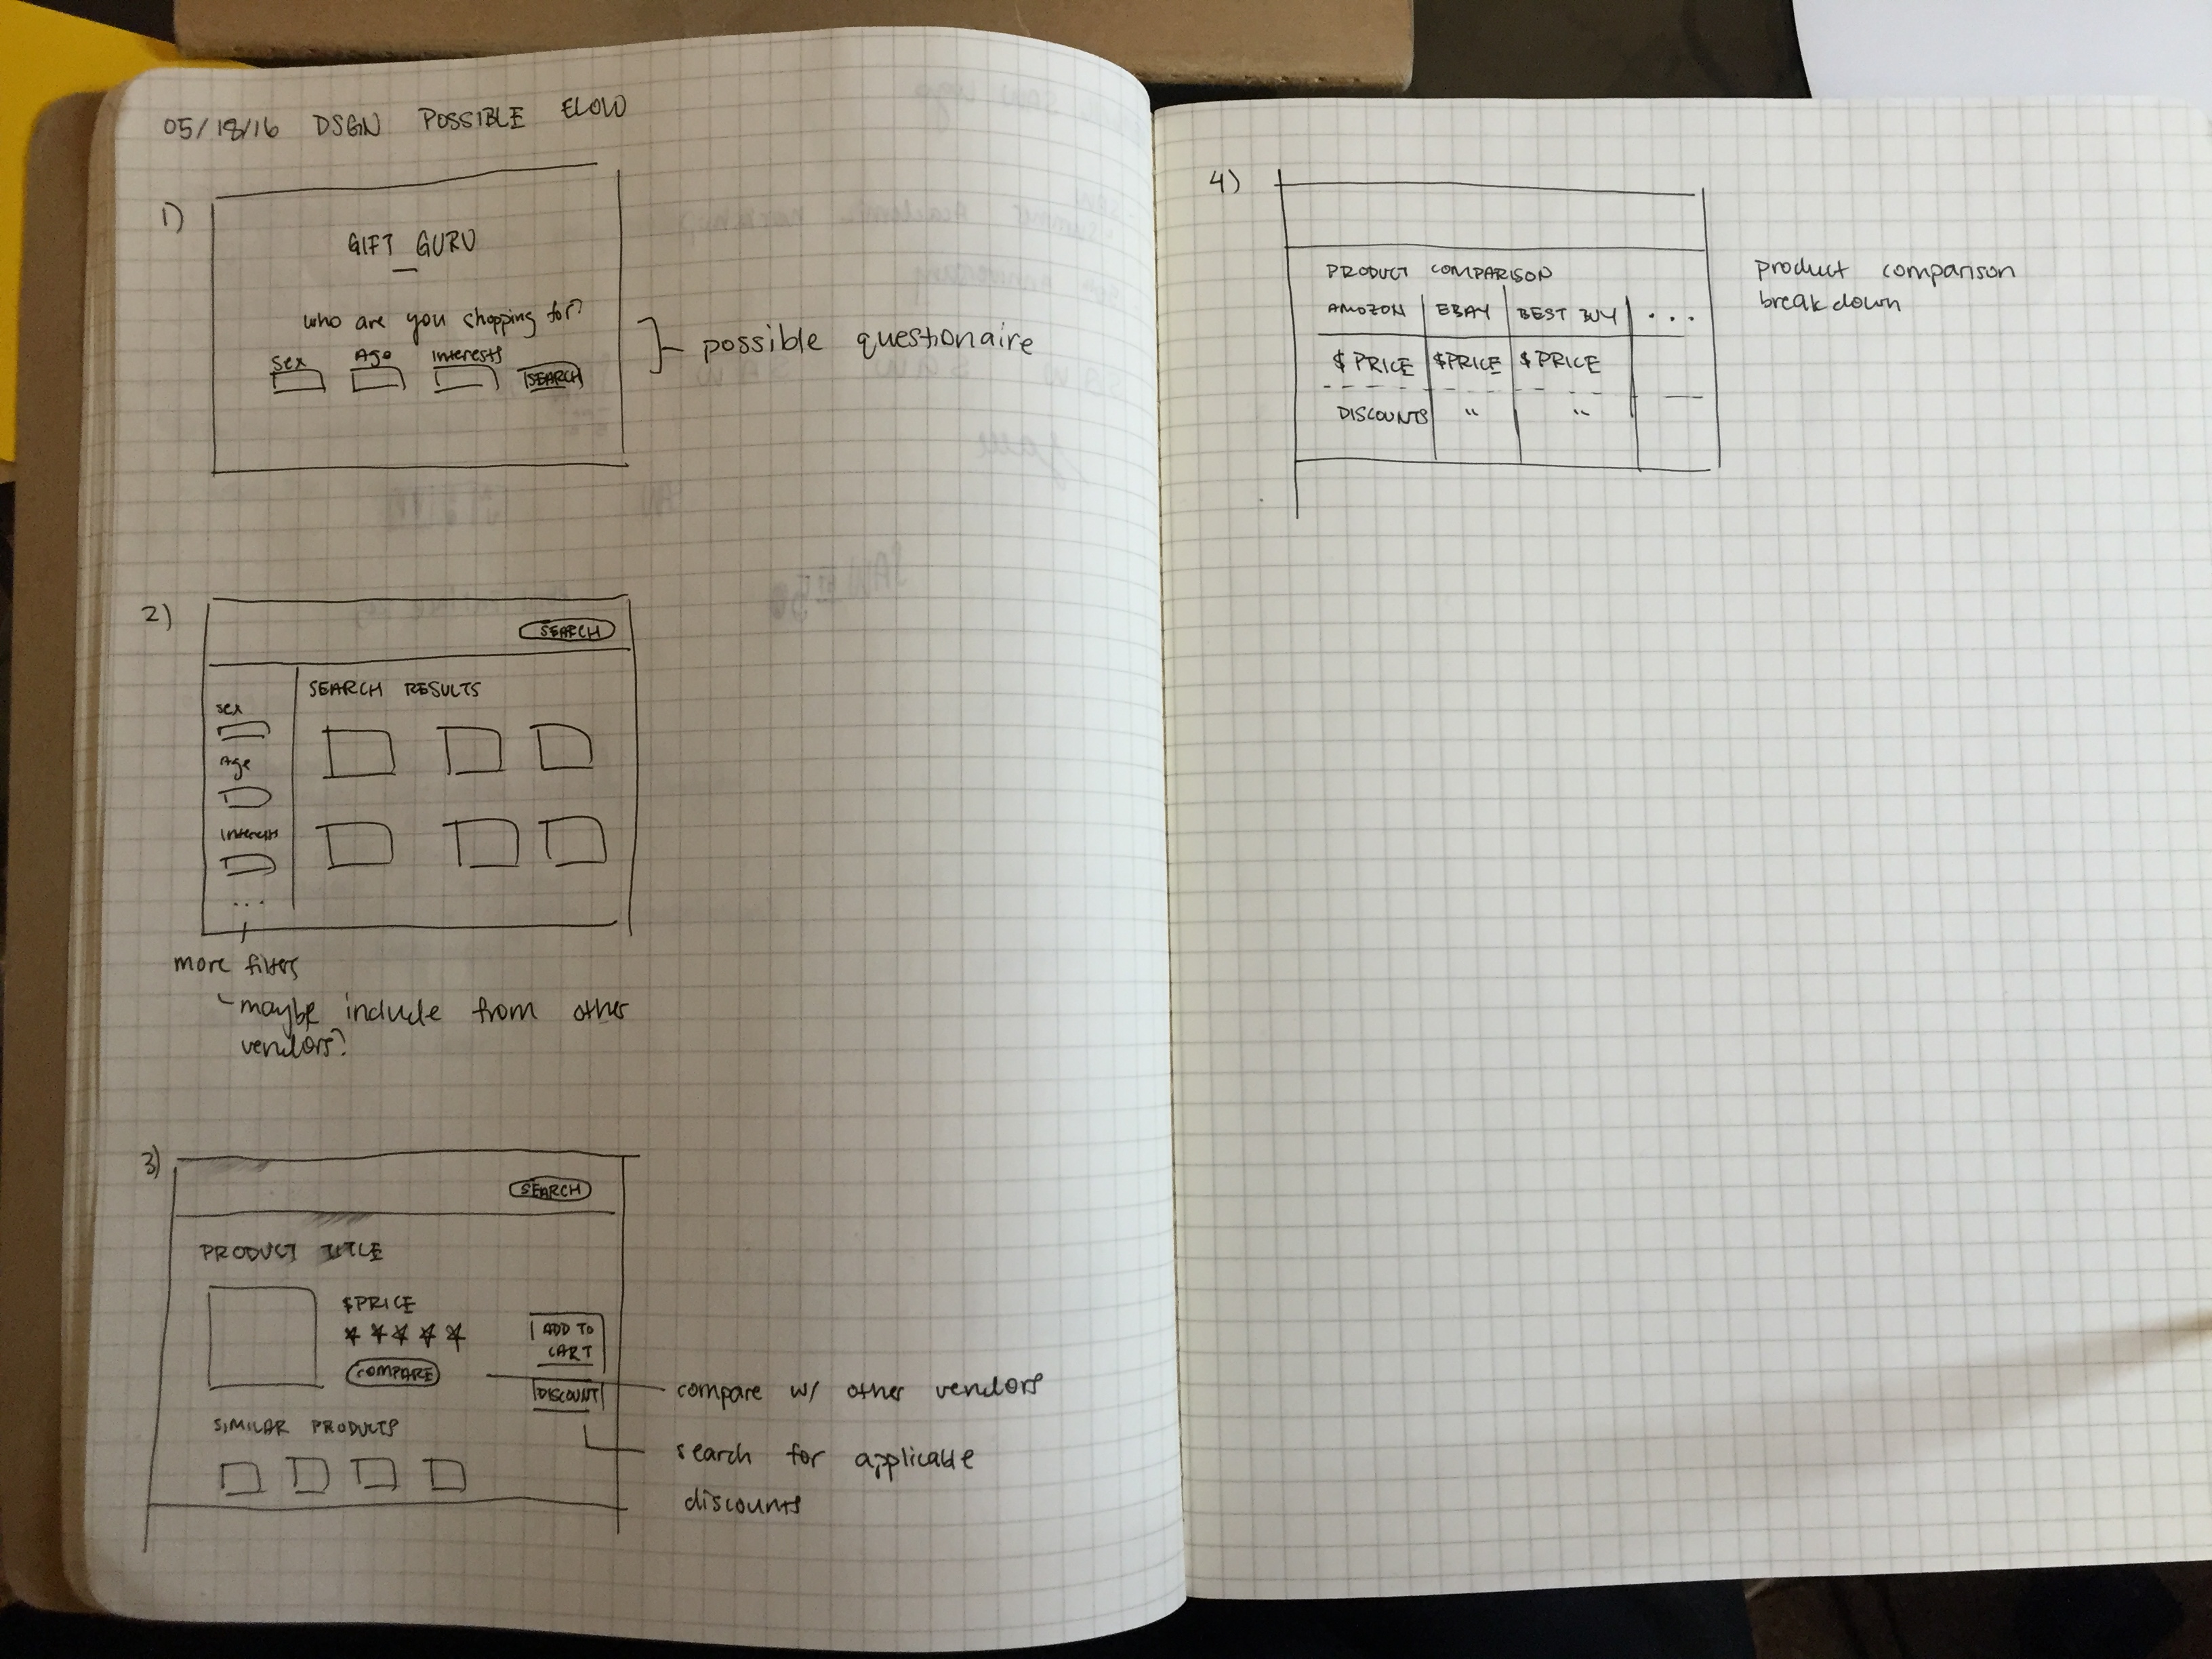 05/18/16 DSGN POSSIBLE FLOW
1)
GIFT GURU
who are you shopping for?
Sex Age Interests SEARCH
possible questionaire
2)
SEARCH
SEARCH RESULTS
Sex
Age
Interests
...
more filters
maybe include from other
vendors?
3)
SEARCH
PRODUCT TITLE
$PRICE
COMPARE
ADD TO
CART
DISCOUNT
SIMILAR PRODUCTS
compare w/ other vendors
search for applicable
discounts
4)
PRODUCT COMPARISON
AMAZON EBAY BEST BUY ...
$PRICE $PRICE $PRICE
DISCOUNTS " "
product comparison
break down